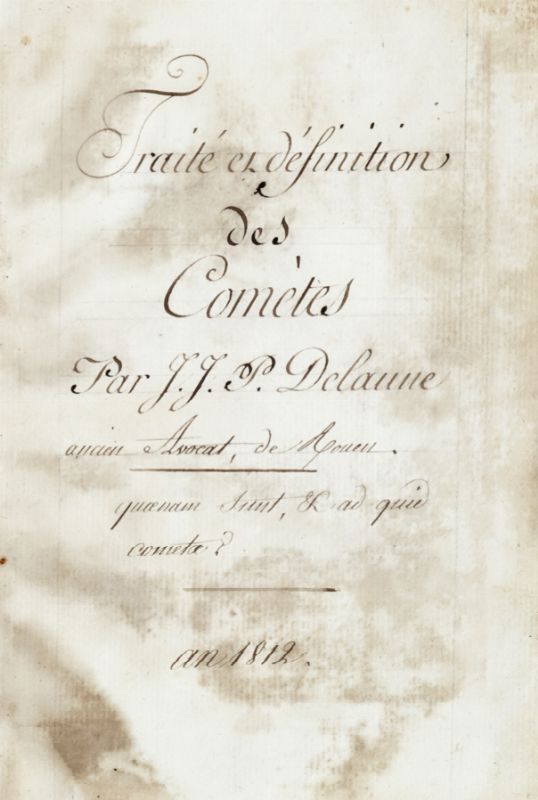 Traité et définition
des
Comètes
Par J. J. P. Delaune
ancien Avocat, de Rouen.
quænam sunt, & ad quid
cometæ?
an 1812.